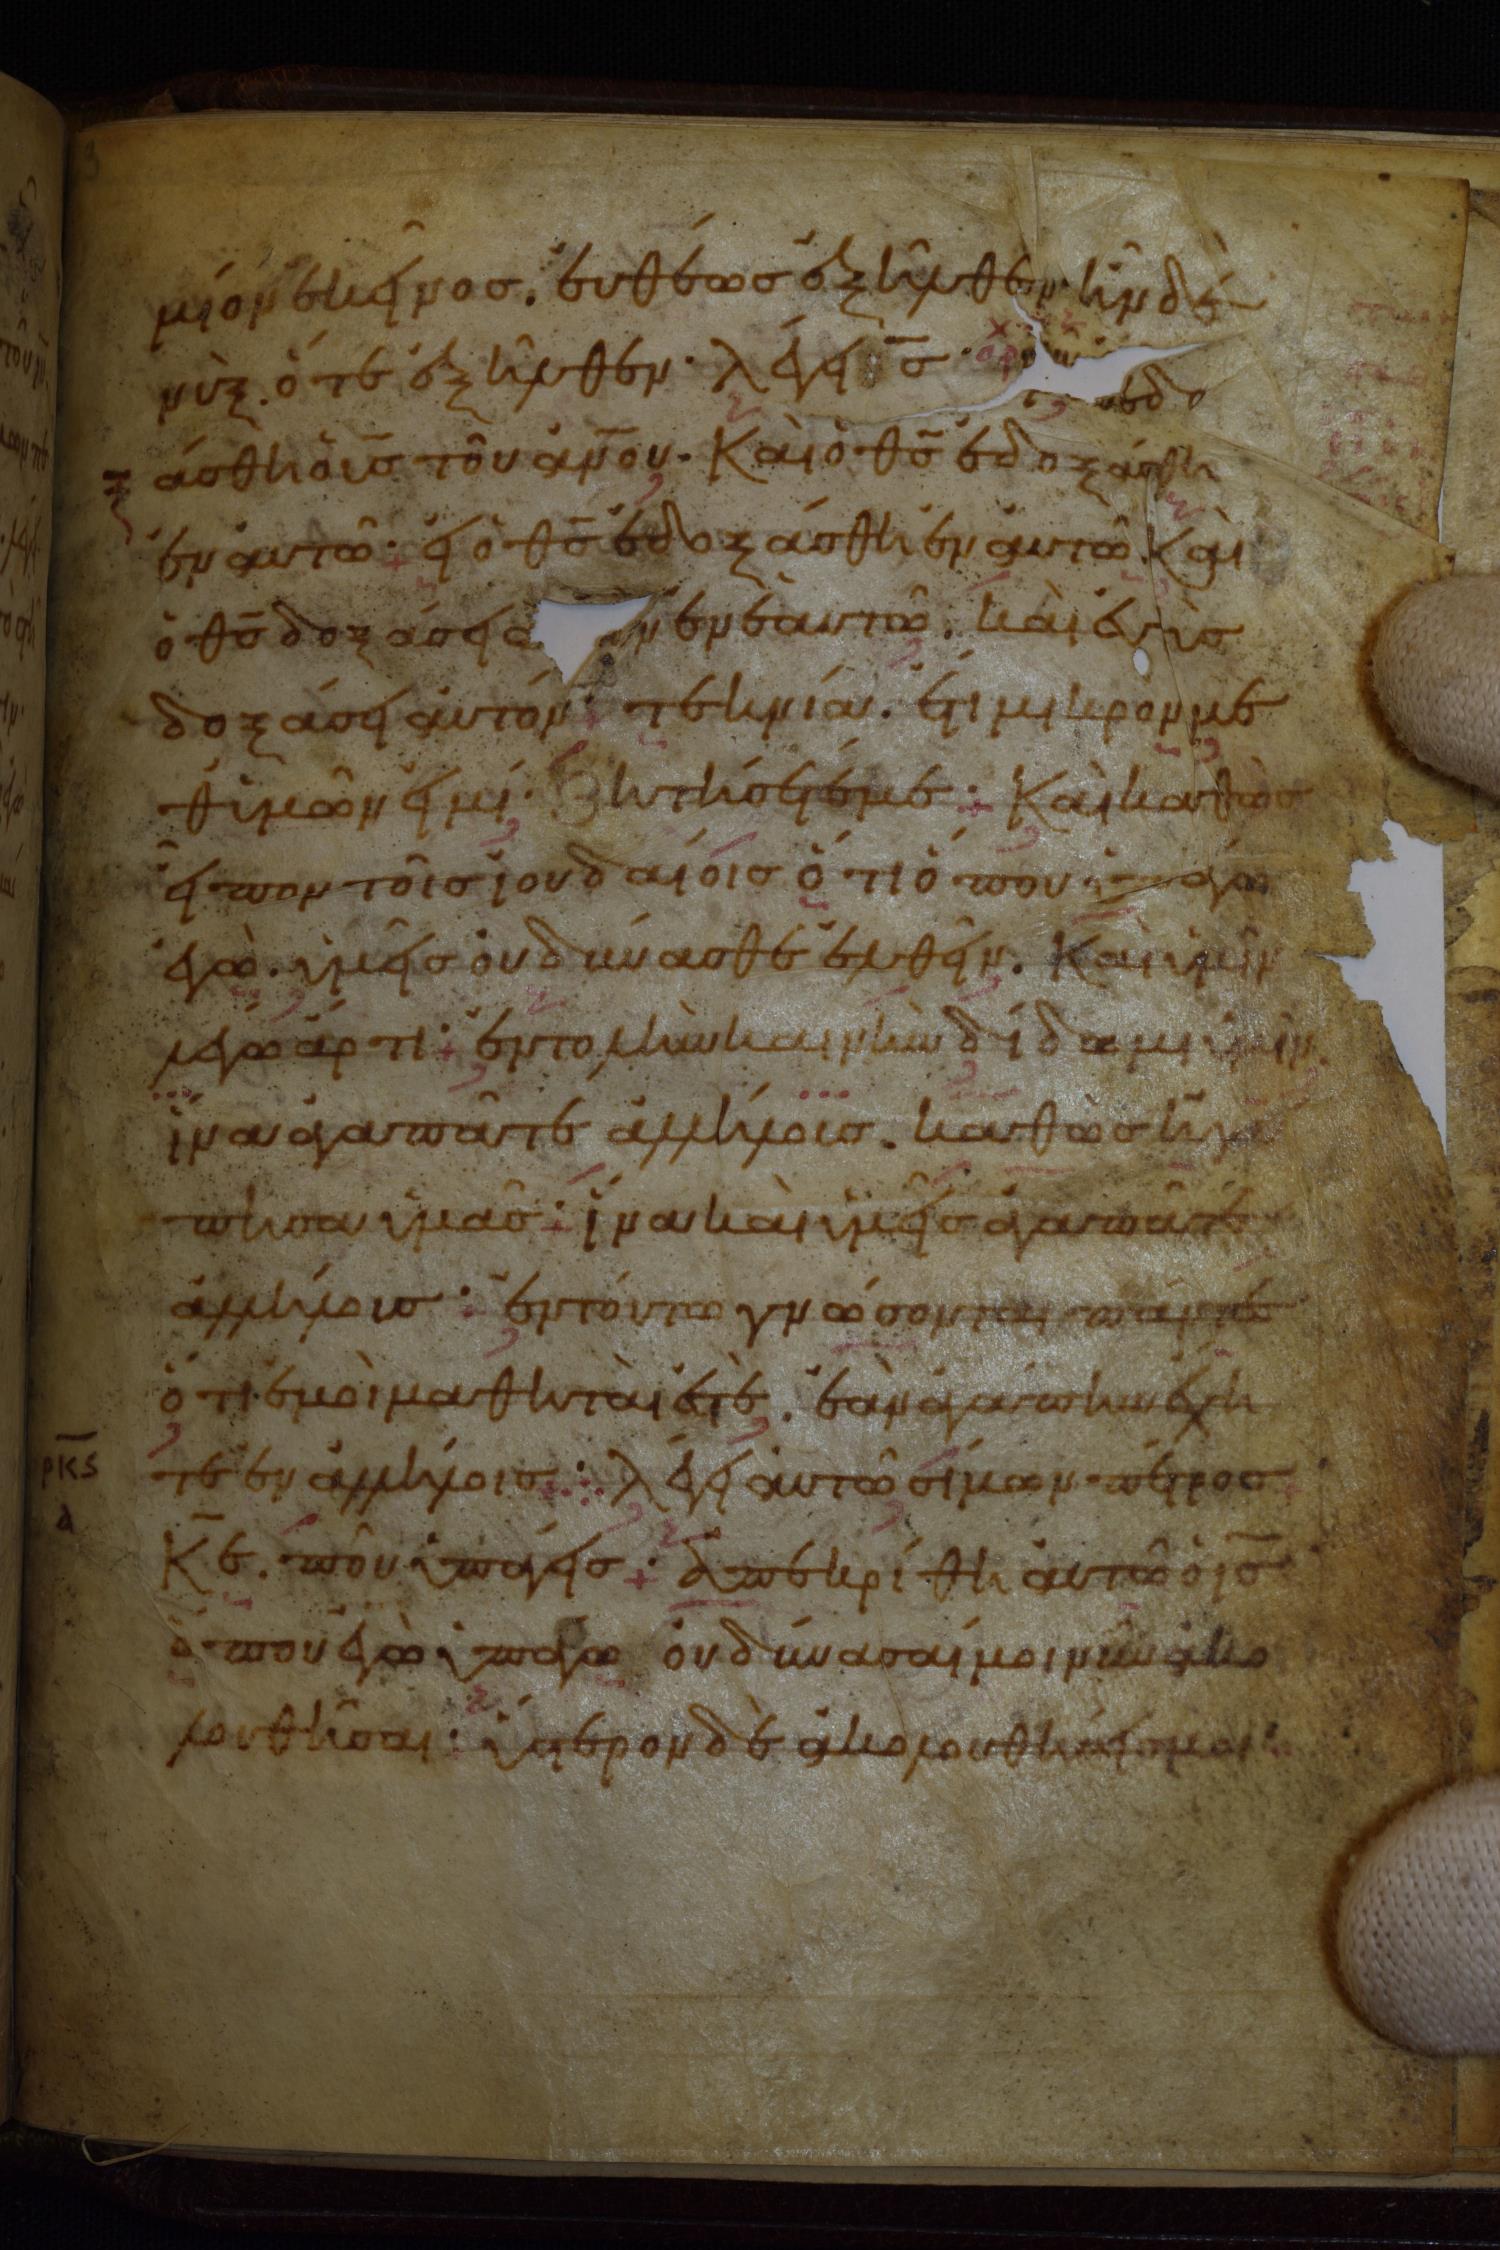 μίον ἐκεῖνος. ἐυθέωσ ἐξῆλθεν· ἦν δὲ
νὺξ. ὅτε ἐξῆλθεν· λέγει ις̅· νῦν ἐδο
ξ
άσθη ὁ υἱς̅ τοῦ αν̅ου. Καὶ ὁ θς̅ ἐδοξάσθη
ἐν αὐτῶ· εἰ ὁ θς̅ ἐδοξάσθη ἐν αὐτῶ. καὶ
ὁ θς̅ δοξάσει ἐν ἑαυτῶ. καὶ ἐυθὺσ
δοξάσει ἀυτόν· τεκνία. ἔτι μικρον με
θ ὑμῶν εἰμί· Ζητήσετέ με· Καὶ καθὼσ
εἶπον τοῖσ ἰουδαίοισ ὅτι ὅπου ὑπάγω
ἐγὼ. ὑμεῖσ ὀυ δύνασθε ἐλθεῖν. Καὶ ὑμῖν
λέγω ἄρτι· ἐντολὴν καινὴν δίδωμι ὑμῖν.
ἵνα ἀγαπᾶτε ἀλλήλοισ. καθὼσ ἠγά
πησα ὑμᾶσ· ἵνα καὶ ὑμεῖσ ἀγαπᾶτε
ἀλλήλοισ· ἐν τούτω γνώσονται πάντεσ
ὅτι ἐμοὶ μαθηταί ἐστὲ. ἐὰν ἀγάπην ἔχη
ρκς
δ
τε ἐν ἀλλήλοισ· λέγει ἀυτῶ σίμων πέτροσ
Κε̅. ποῦ ὑπάγεισ· Ἀπεκρίθη ἀυτῶ ὁ ις̅
ὅπου ἐγὼ ὑπάγω ὀυ δύνασαί μοι νῦν ἀκο
λουθῆσαι· ὕστερον δὲ ἀκολουθήσεισ μοι·